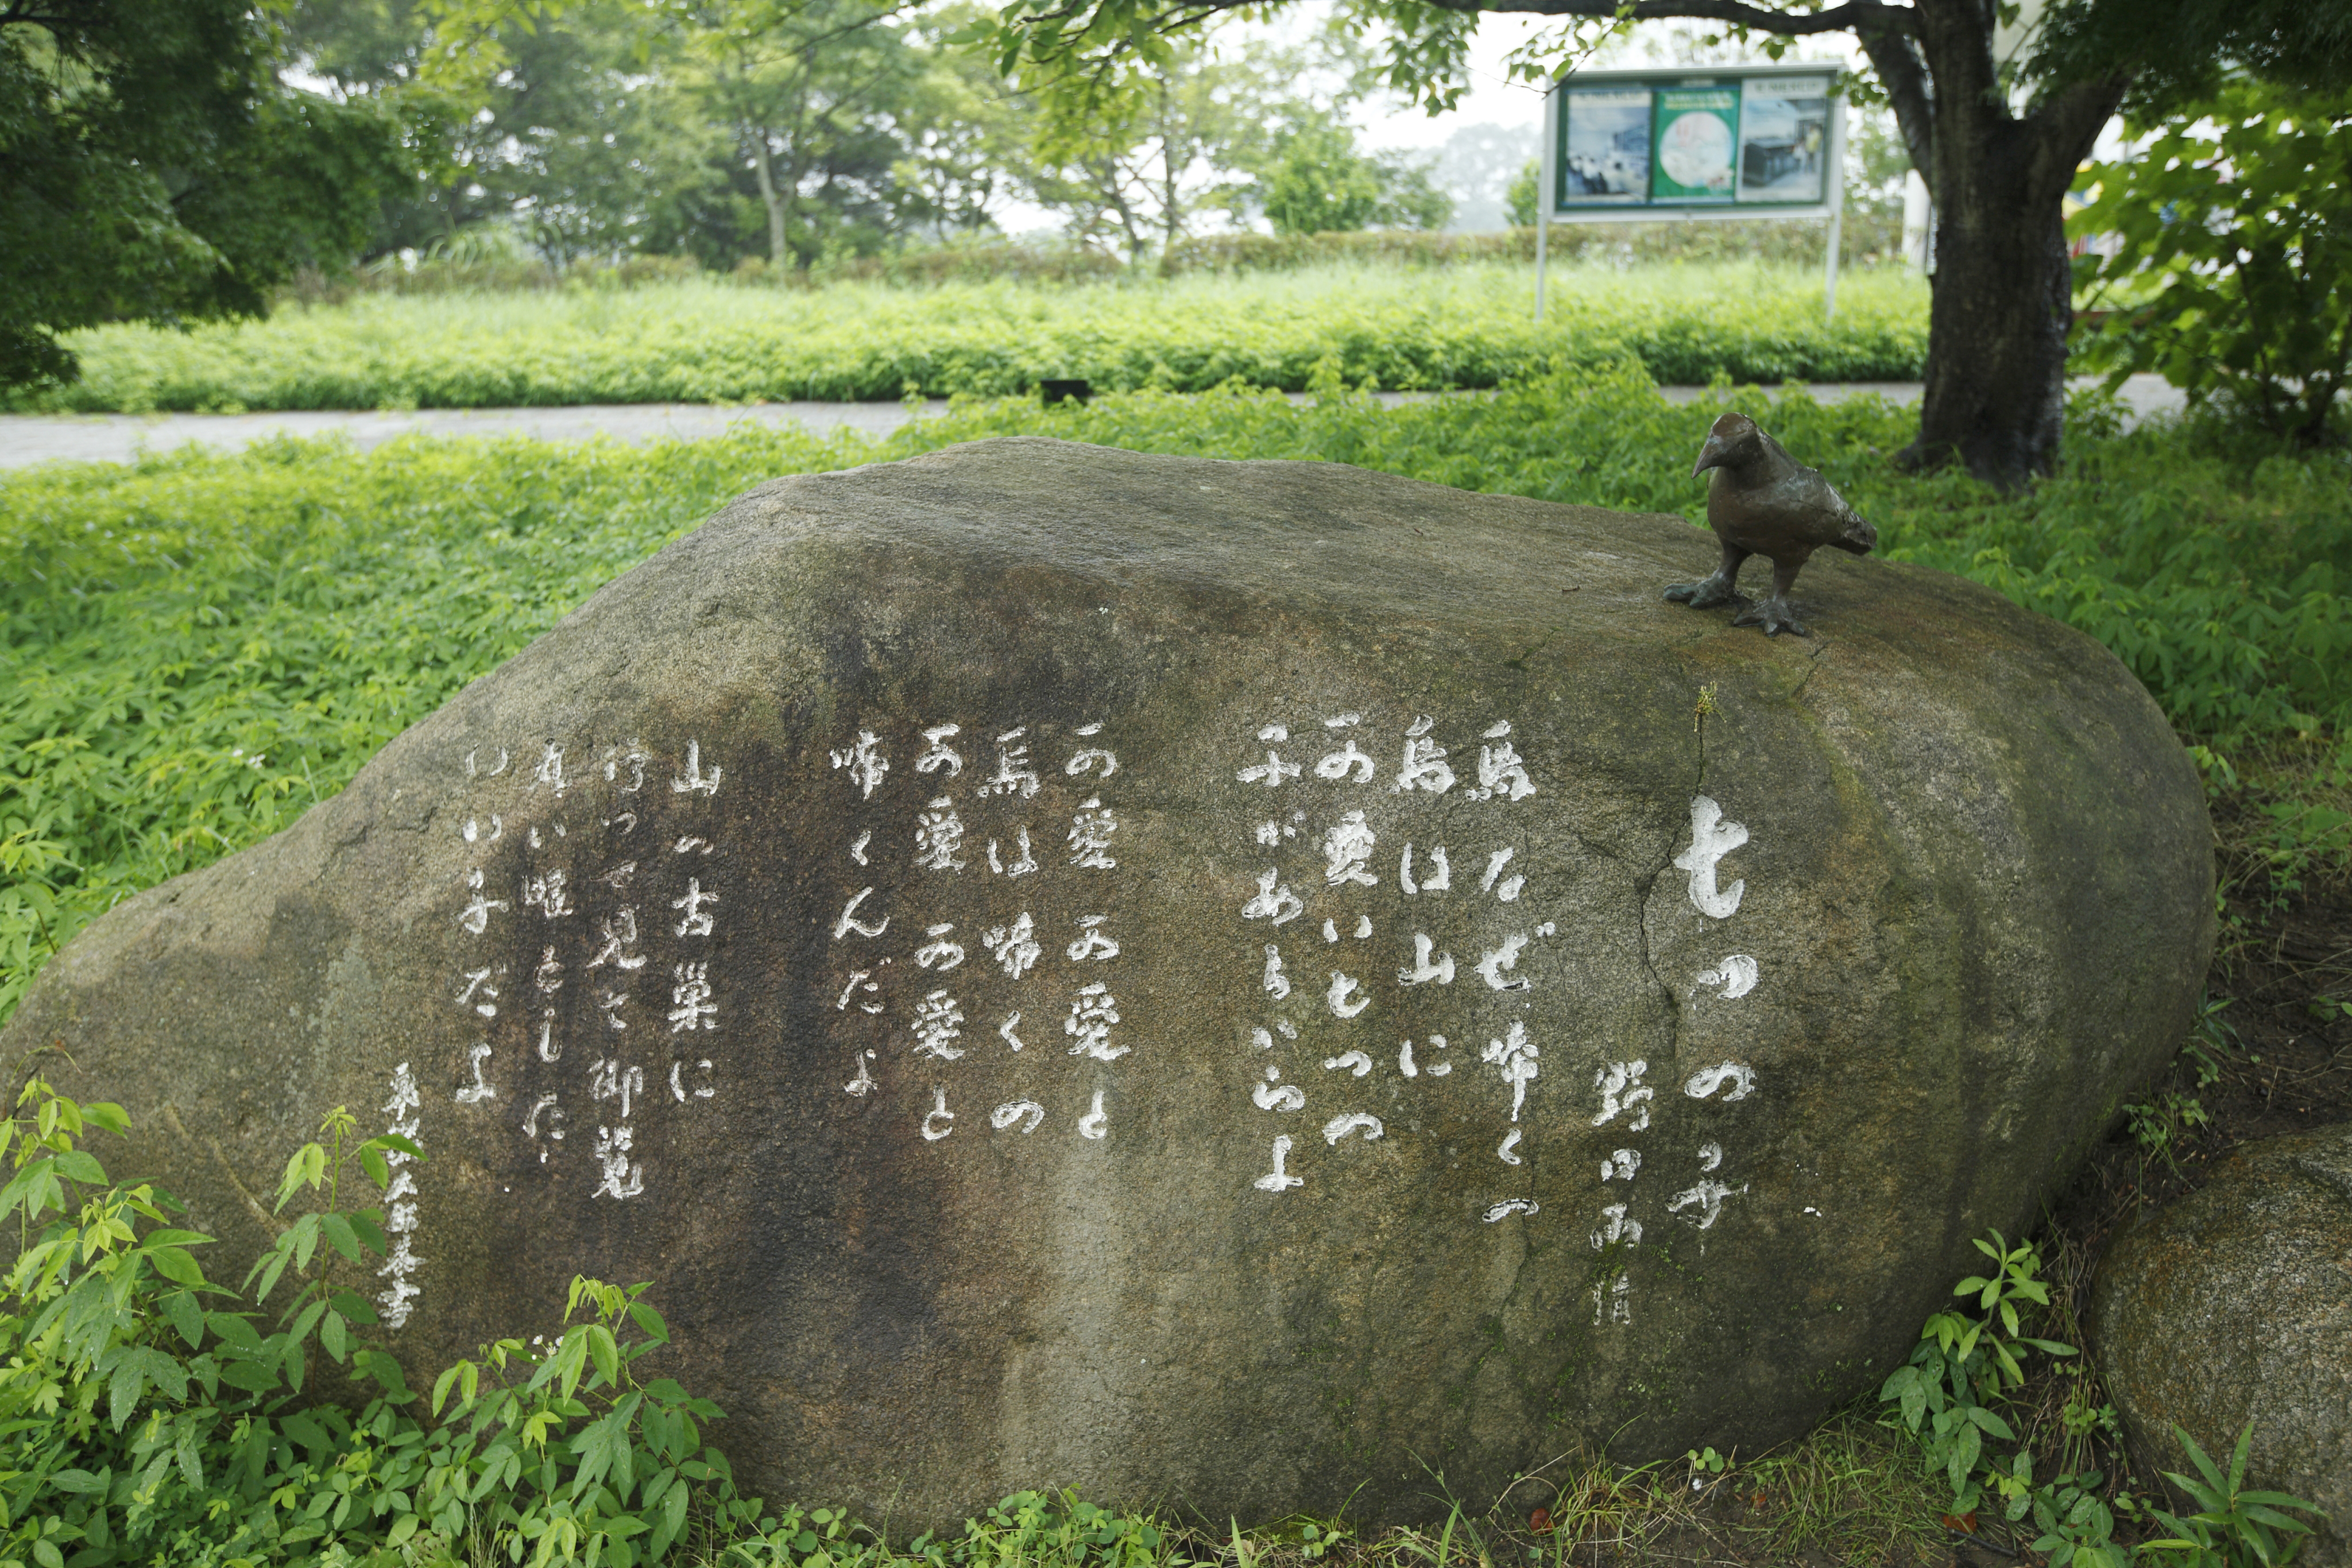 七つの子
野口雨情
烏なぜ啼くの
烏は山に
可愛い七つの
子があるからよ
可愛可愛と
烏は啼くの
可愛可愛と
啼くんだよ
山の古巣に
行つて見て御覧
丸い眼をした
いい子だよ